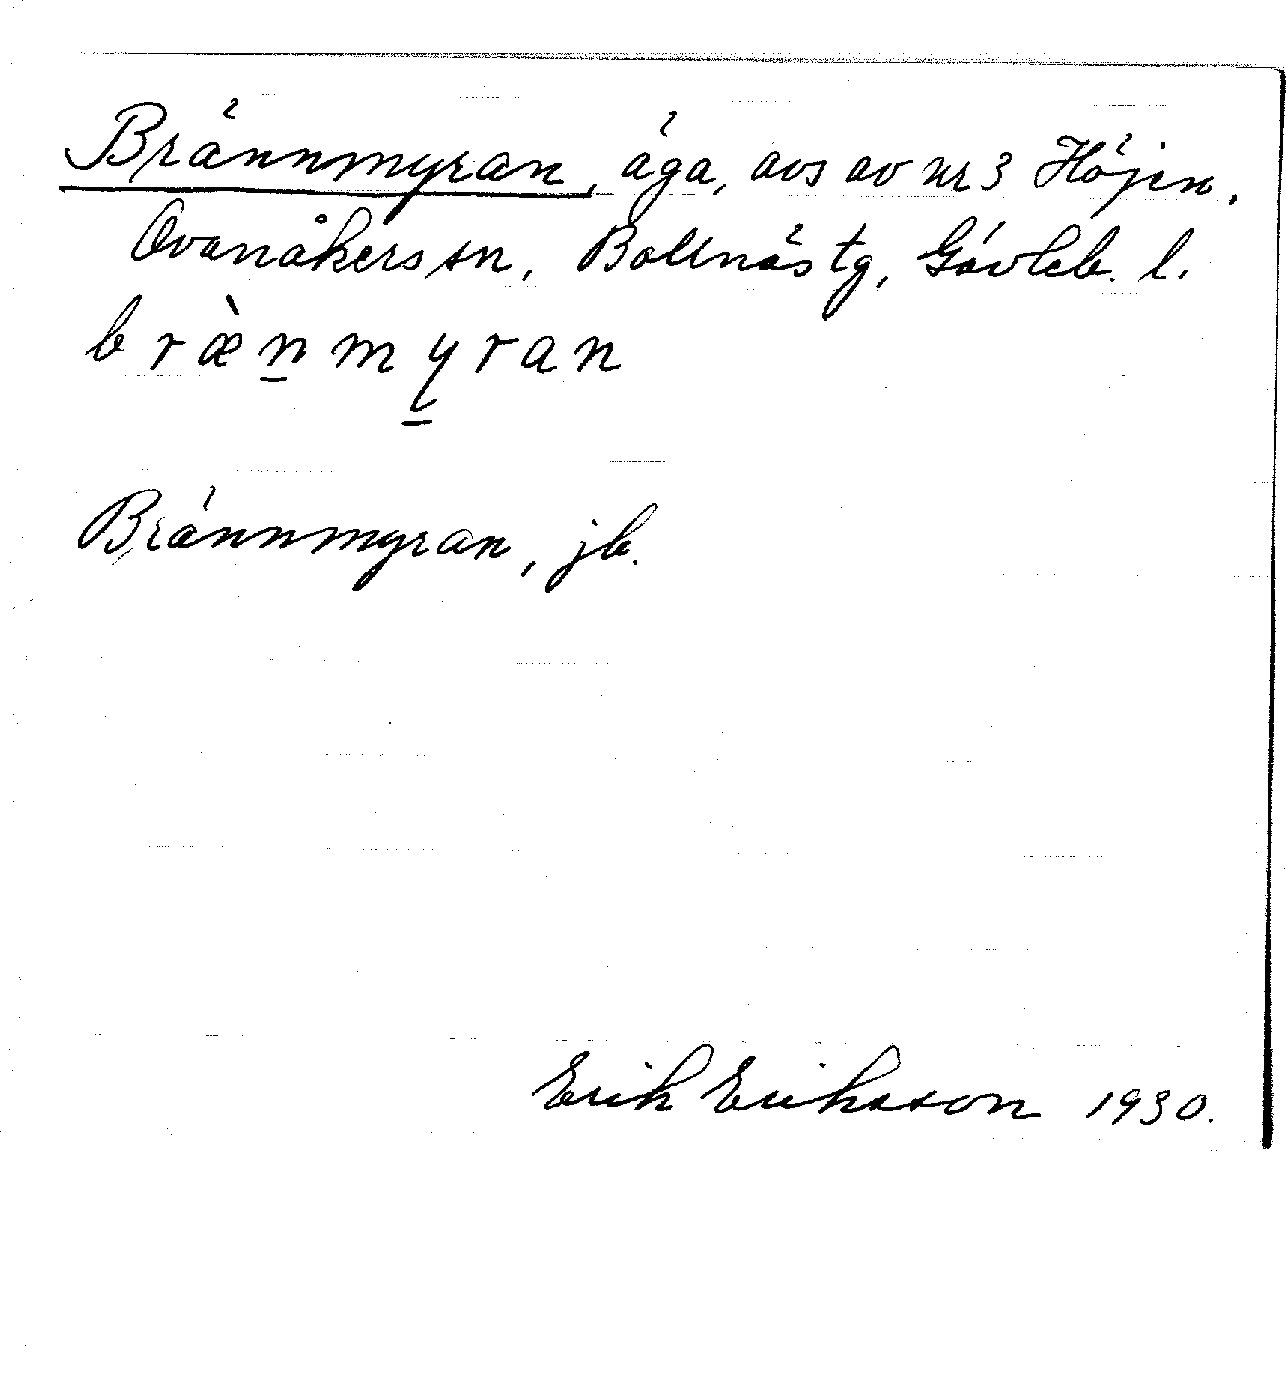 Brännmyran, äga, avs av nr 3 Höjen,
Ovanåkers sn, Bollnäs tg, Gävleb. l.
bræ̀n̲my̲ran
Brännmyran, jb.
Erik Eriksson 1930.